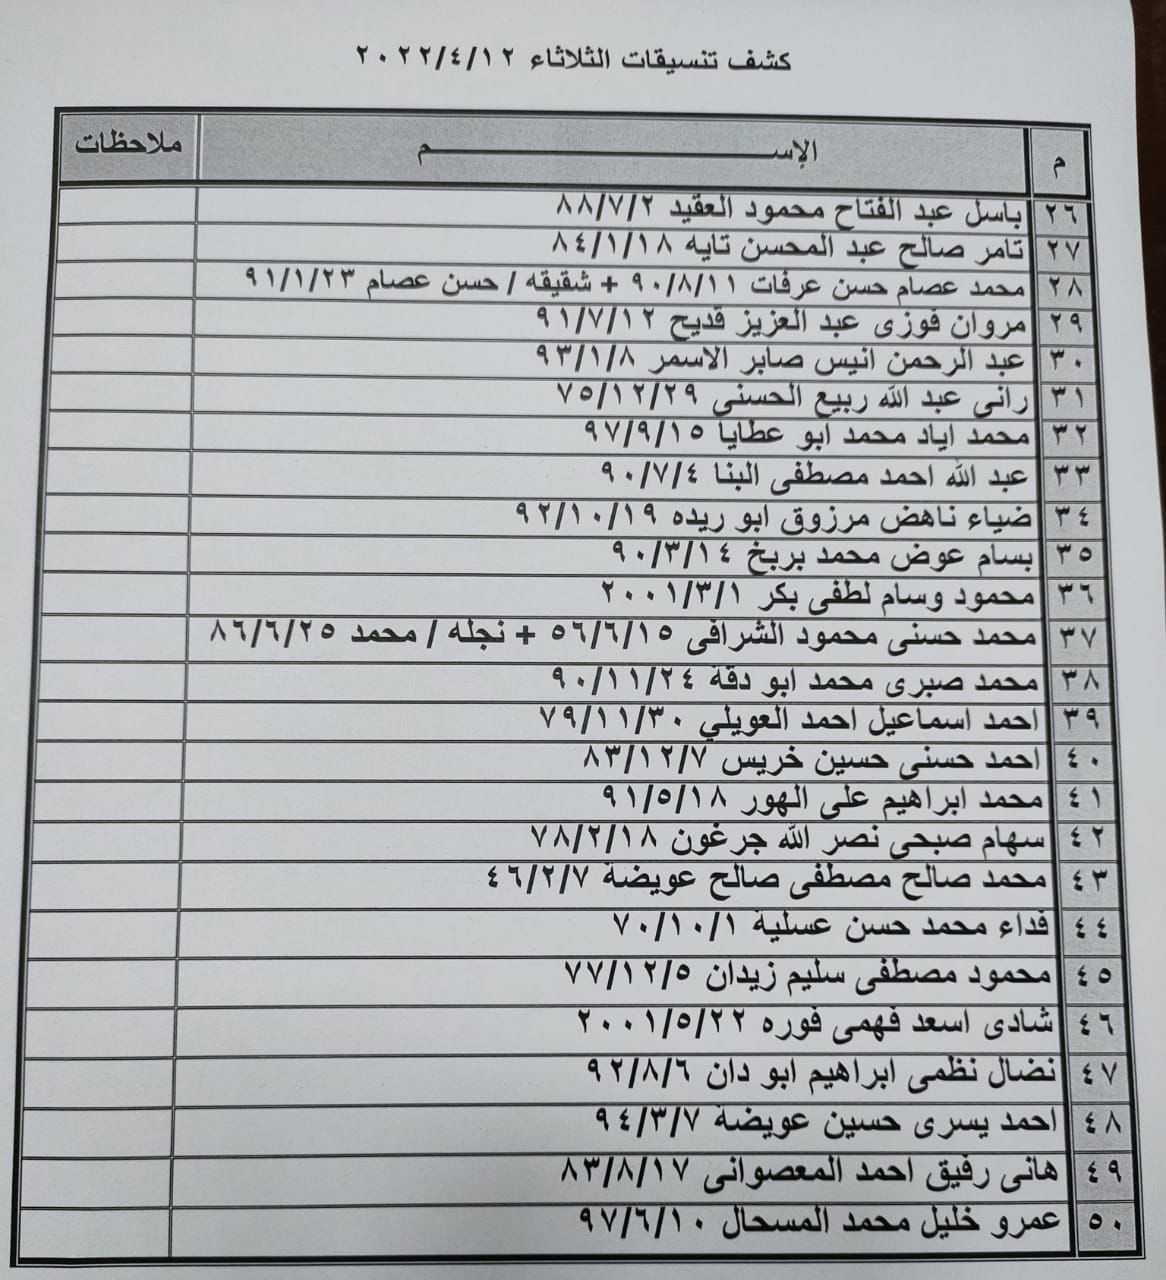 كشف تنسيقات الثلاثاء ٢٠٢٢/٤/١٢
م الإســـــــــم ملاحظات
٢٦ باسل عبد الفتاح محمود العقيد ٨٨/٧/٢
٢٧ تامر صالح عبد المحسن تايه ٨٤/١/١٨
٢٨ محمد عصام حسن عرفات ٩٠/٨/١١ + شقيقه / حسن عصام ٩١/١/٢٣
٢٩ مروان فوزى عبد العزيز قديح ٩١/٧/١٢
٣٠ عبد الرحمن انيس صابر الاسمر ٩٣/١/٨
٣١ رانى عبد الله ربيع الحسنى ٧٥/١٢/٢٩
٣٢ محمد اياد محمد ابو عطايا ٩٧/٩/١٥
٣٣ عبد الله احمد مصطفى البنا ٩٠/٧/٤
٣٤ ضياء ناهض مرزوق ابو ريده ٩٢/١٠/١٩
٣٥ بسام عوض محمد بربخ ٩٠/٣/١٤
٣٦ محمود وسام لطفى بكر ٢٠٠١/٣/١
٣٧ محمد حسنى محمود الشرافى ٥٦/٦/١٥ + نجله / محمد ٨٦/٦/٢٥
٣٨ محمد صبرى محمد ابو دقة ٩٠/١١/٢٤
٣٩ احمد اسماعيل احمد العويلي ٧٩/١١/٣٠
٤٠ احمد حسنى حسين خريس ٨٣/١٢/٧
٤١ محمد ابراهيم على الهور ٩١/٥/١٨
٤٢ سهام صبحى نصر الله جرغون ٧٨/٢/١٨
٤٣ محمد صالح مصطفى صالح عويضة ٤٦/٢/٧
٤٤ فداء محمد حسن عسلية ٧٠/١٠/١
٤٥ محمود مصطفى سليم زيدان ٧٧/١٢/٥
٤٦ شادى اسعد فهمى فوره ٢٠٠١/٥/٢٢
٤٧ نضال نظمى ابراهيم ابو دان ٩٢/٨/٦
٤٨ احمد يسرى حسين عويضة ٩٤/٣/٧
٤٩ هانى رفيق احمد المعصوانى ٨٣/٨/١٧
٥٠ عمرو خليل محمد المسحال ٩٧/٦/١٠